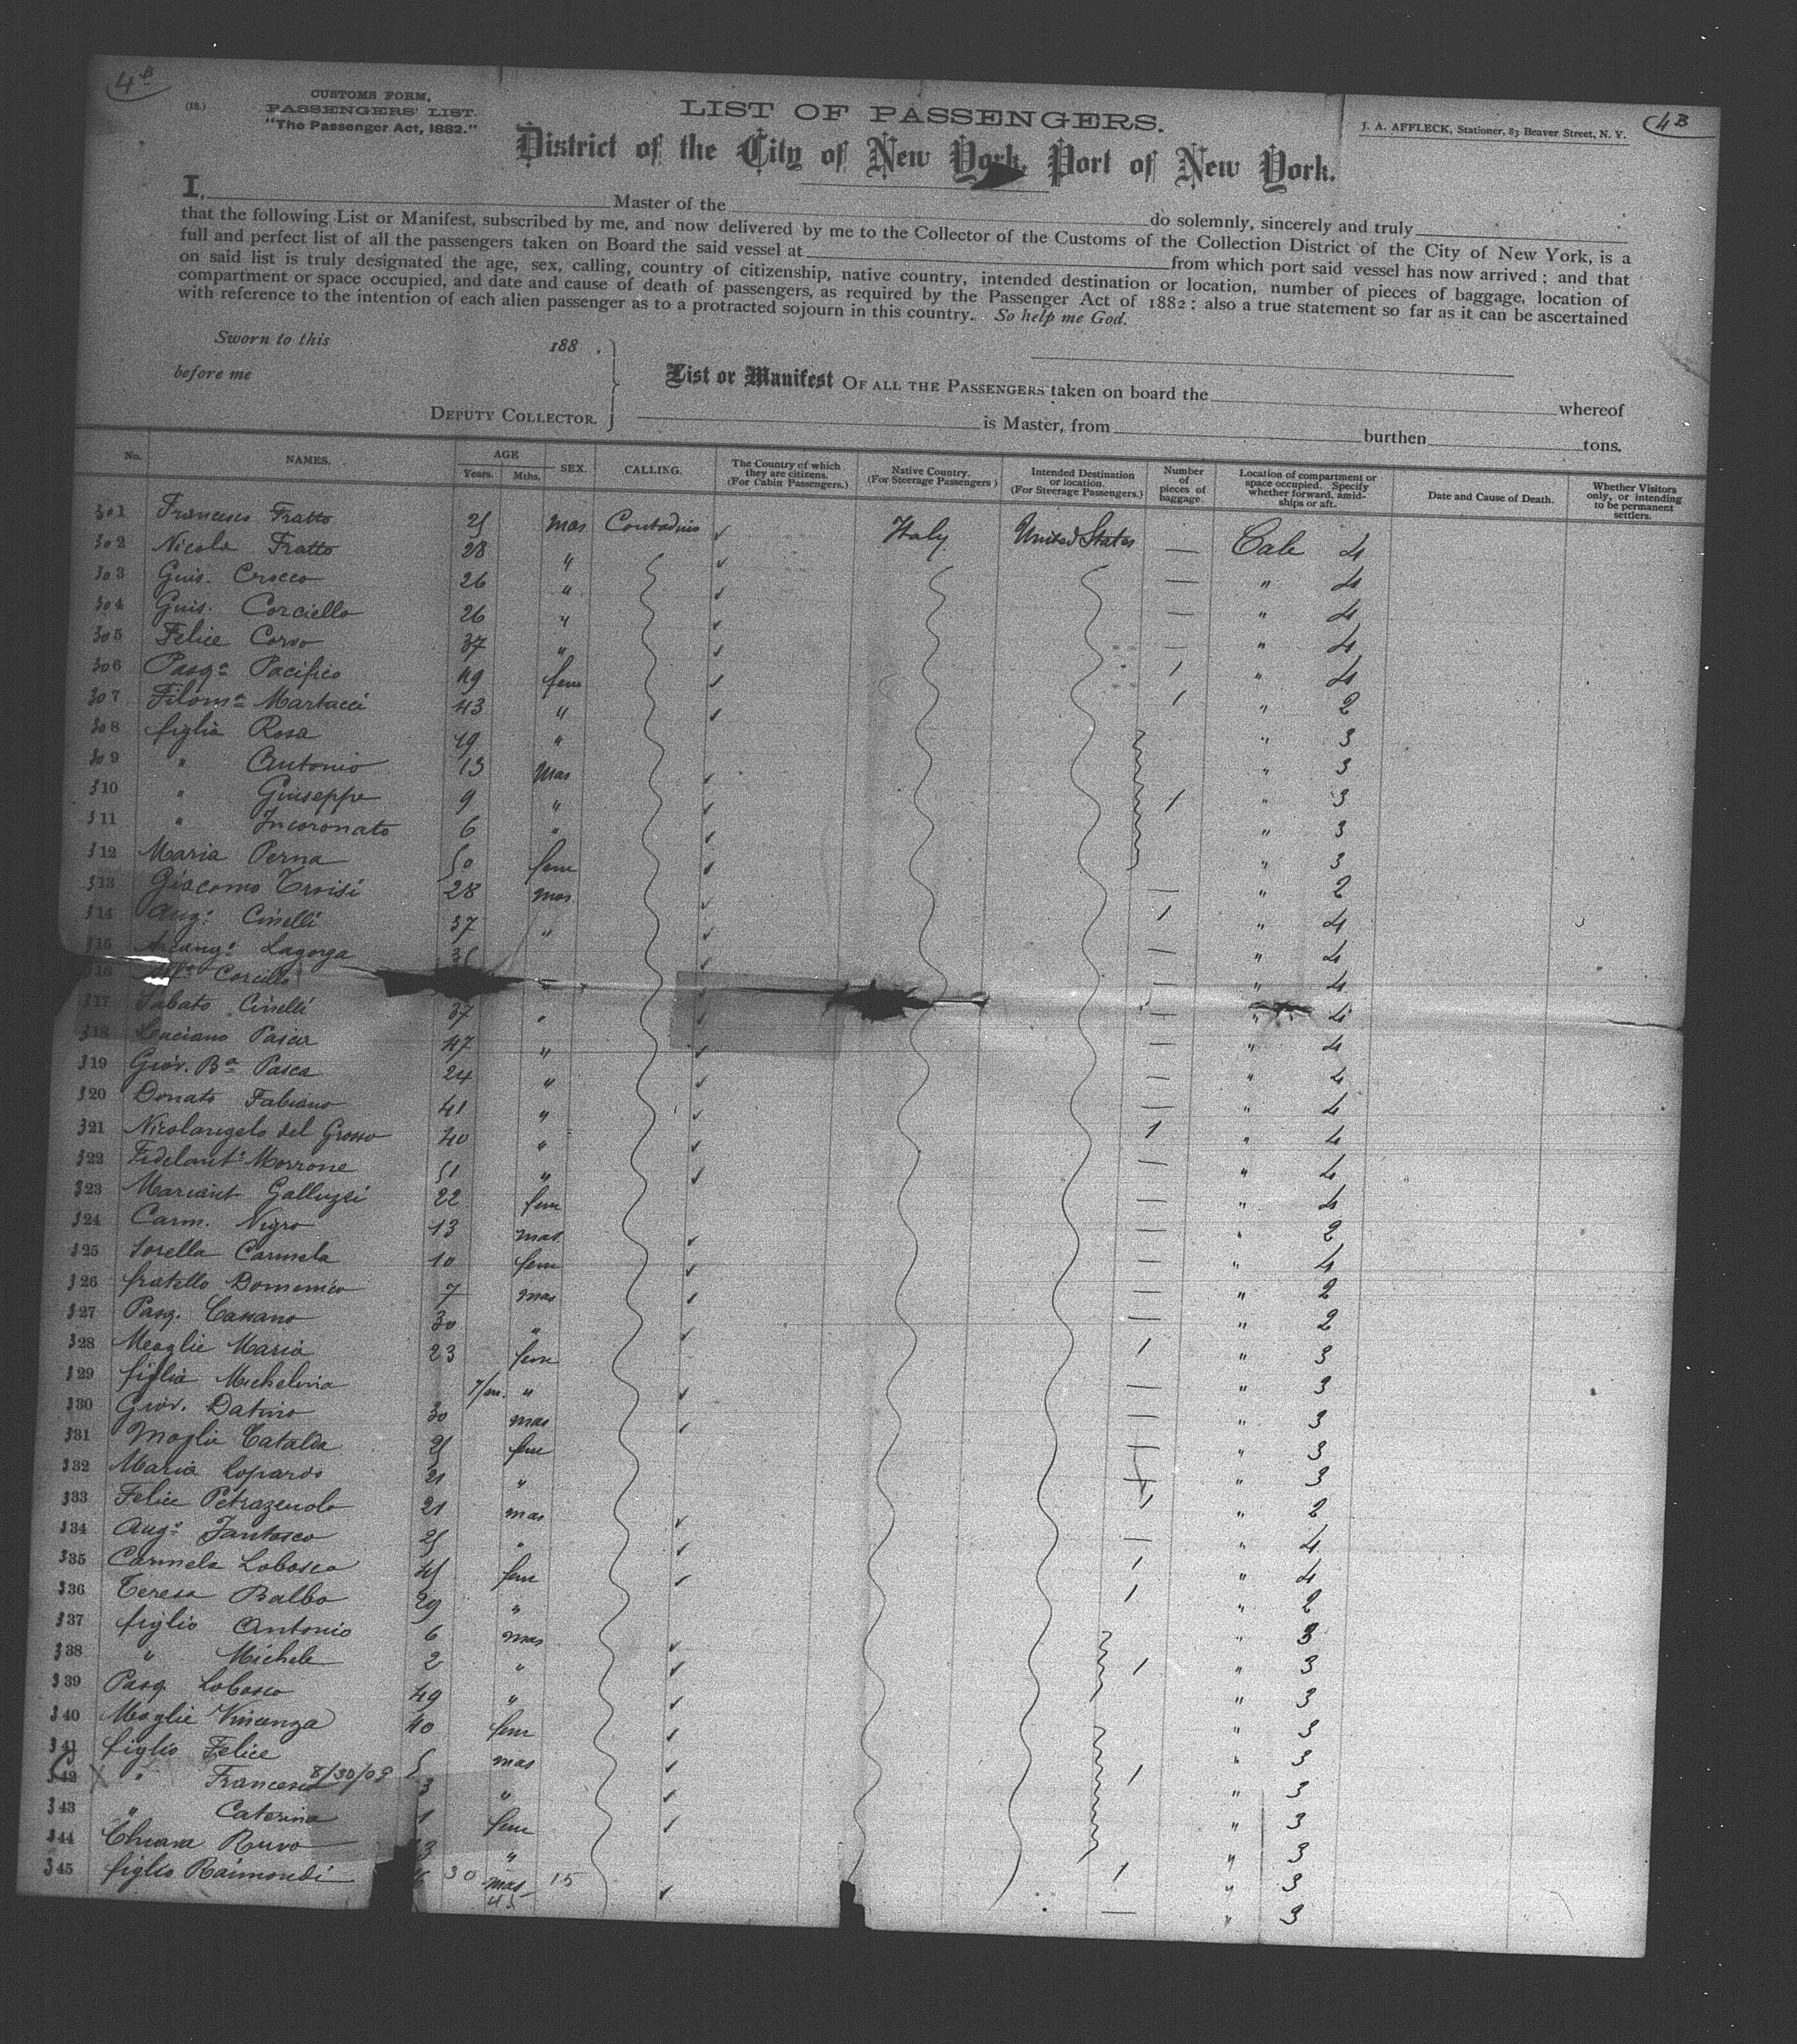 4B
(18.)
CUSTOMS FORM,
PASSENGERS' LIST.
"The Passenger Act, 1882."
LIST OF PASSENGERS.
J. A. AFFLECK, Stationer, 83 Beaver Street, N. Y.
4B
District of the City of New York, Port of New York.
I, Master of the do solemnly, sincerely and truly
that the following List or Manifest, subscribed by me, and now delivered by me to the Collector of the Customs of the Collection District of the City of New York, is a
full and perfect list of all the passengers taken on Board the said vessel at from which port said vessel has now arrived; and that
on said list is truly designated the age, sex, calling, country of citizenship, native country, intended destination or location, number of pieces of baggage, location of
compartment or space occupied, and date and cause of death of passengers, as required by the Passenger Act of 1882; also a true statement so far as it can be ascertained
with reference to the intention of each alien passenger as to a protracted sojourn in this country. So help me God.
Sworn to this 188 .
before me
DEPUTY COLLECTOR.
List or Manifest OF ALL THE PASSENGERS taken on board the whereof
is Master, from burthen tons.
No. NAMES. AGE Years. Mths. SEX. CALLING. The Country of which they are citizens. (For Cabin Passengers.) Native Country. (For Steerage Passengers) Intended Destination or location. (For Steerage Passengers.) Number of pieces of baggage. Location of compartment or space occupied. Specify whether forward, amidships or aft. Date and Cause of Death. Whether Visitors only, or intending to be permanent settlers.
301 Francesco Fratto 25 mas Contadino Italy United States — Cab 4
302 Nicola Fratto 28 " — " 4
303 Guis. Crocco 26 " — " 4
304 Guis. Corciello 26 " — " 4
305 Felice Corso 37 " 1 " 4
306 Pasqa Pacifico 49 fem 1 " 2
307 Filoma Martacci 43 " " 3
308 figlia Rosa 19 " " 3
309 " Antonio 13 mas 1 " 3
310 " Giuseppe 9 " " 3
311 " Incoronato 6 " " 3
312 Maria Perna 50 fem — " 2
313 Giacomo Troisi 28 mas 1 " 4
314 Ango Cinelli 37 " — " 4
315 Arcango Lagorga — " 4
316 — " 4
317 Sabato Cinelli 37 " — " 4
318 Luciano 47 " — " 4
319 Giov. Ba Pasca 24 " — " 4
320 Donato Fabiano 41 " 1 " 4
321 Nicolangelo del Grosso 40 " — " 4
322 Fidelanto Morrone 51 " — " 4
323 Mariant. Galluzzi 22 fem — " 2
324 Carm. Nigro 13 mas — " 4
325 Sorella Carmela 10 fem — " 2
326 fratello Domenico 7 mas — " 2
327 Pasq. Cassano 30 " 1 " 3
328 Moglie Maria 23 fem — " 3
329 figlia Michelina 7/m. " — " 3
330 Giov. Datino 30 mas — " 3
331 Moglie Catalda 25 fem " 3
332 Maria Lopardo 21 " 1 " 2
333 Felice 21 mas — " 4
334 Ango Fantasco 25 " 1 " 4
335 Carmela Lobosco 45 fem 1 " 2
336 Teresa Balbo 29 " " 3
337 figlio Antonio 6 mas 1 " 3
338 " Michele 2 " " 3
339 Pasq Lobosco 49 " " 3
340 Moglie Vincenza 40 fem " 3
341 figlio Felice 5 mas 1 " 3
342 X " Francesco 8/30/09 3 " " 3
343 " Caterina 1 fem " 3
344 Chiara Ruvo " 1 " 3
345 figlio Raimondi 30 mas 15 — " 3
45